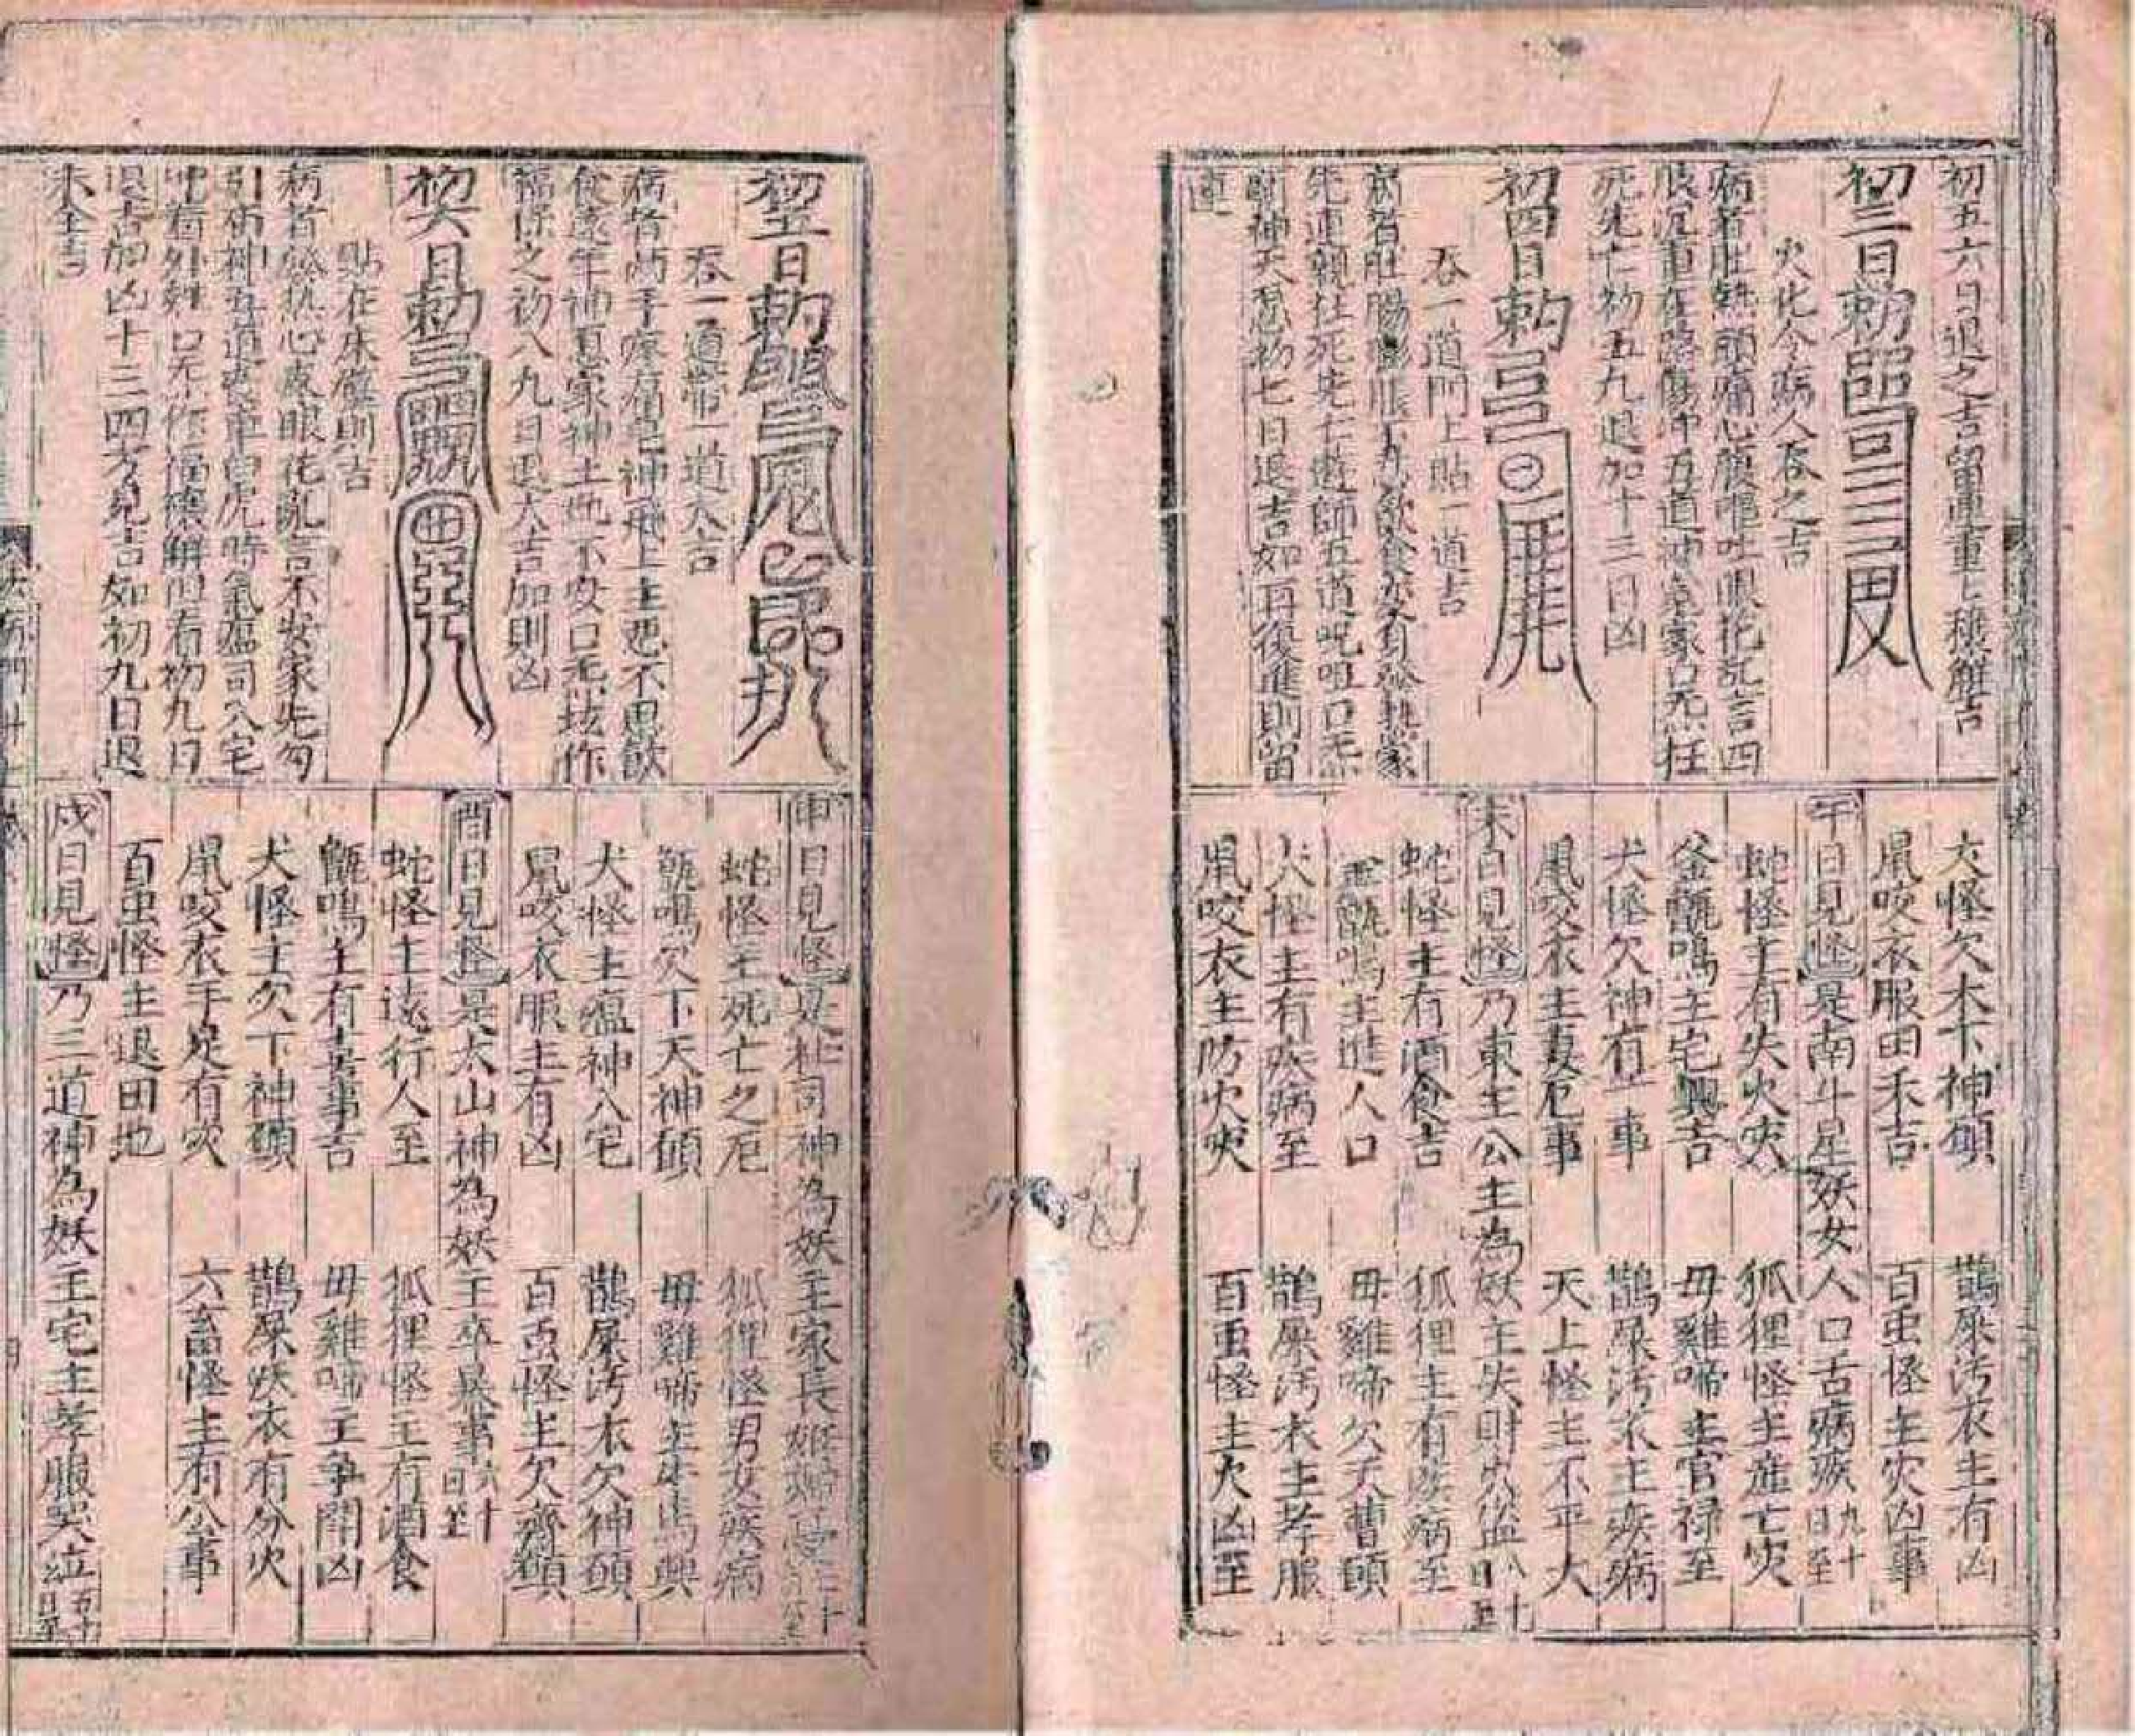 初五六日退之吉留連重亡穰維吉
初三日勅
火化令病人吞之吉
病者肚熱頭痛心腹嘔吐眼花乱言四
肢沉重在路傷中五道神急家口无狂
死先亡初五九退加十三日凶
初四日勅
吞一道門上貼一道吉
病者肚腸膨脹下九飲食欠身發熱家
先連親往死先亡遊師五道呪咀口无
願神天忽初七日退吉如再復進則留
連
犬怪欠木下神願
鵲屎汚衣主有凶
鼠咬衣服田禾吉
百虫怪主灾凶事
午日見怪是南斗星妖女人口舌病疾九十日至
蛇怪主有失火灾
狐狸怪主進亡灾
釜甑鳴主宅興吉
母雞啼主官禄至
犬怪欠神有一事
鵲屎汚衣主疾病
鼠咬衣主妻厄事
天上怪主不平大
未日見怪乃東王公主為妖主失財灾盜八十日至
蛇怪主有酒食吉
狐狸主有疾病至
釜甑鳴主進人口
母雞啼欠天曹願
犬怪主有疾病至
鵲屎汚衣主孝服
鼠咬衣主防火灾
百虫怪主火凶至
初五日勅
吞一道帶一道大吉
病者両手疼痛邑神飛上主恶不思飲
食遠年神恶家神土地不安口无坟作
福保之初八九日退大吉加則凶
初六日勅
貼在床壁則吉
病者發熱心虚眼花乱言不安家先勾
引傷神五道喪車白虎時氣瘟司入宅
呼有外姓口无作福禳觧但有初九日
退吉加凶十三四方見吉如初九日退
未全吉
申日見怪是社司神為妖主家長
蛇怪主死亡之厄
狐狸怪男女疾病
甑鳴欠下天神願
母雞啼主牛馬興
犬怪主瘟神入宅
鵲屎汚衣欠神願
鼠咬衣服主有凶
百虫怪主欠齋願
酉日見怪是太山神為妖主卒暴事六十日至
蛇怪主遠行人至
狐狸怪主有酒食
甑鳴主有喜事吉
母雞啼主爭閗凶
犬怪主欠下神願
鵲屎汚衣有分火
鼠咬衣手足有灾
六畜怪主有公事
百虫怪主退田地
戌日見怪乃三道神為妖主宅主孝服哭泣五十日至